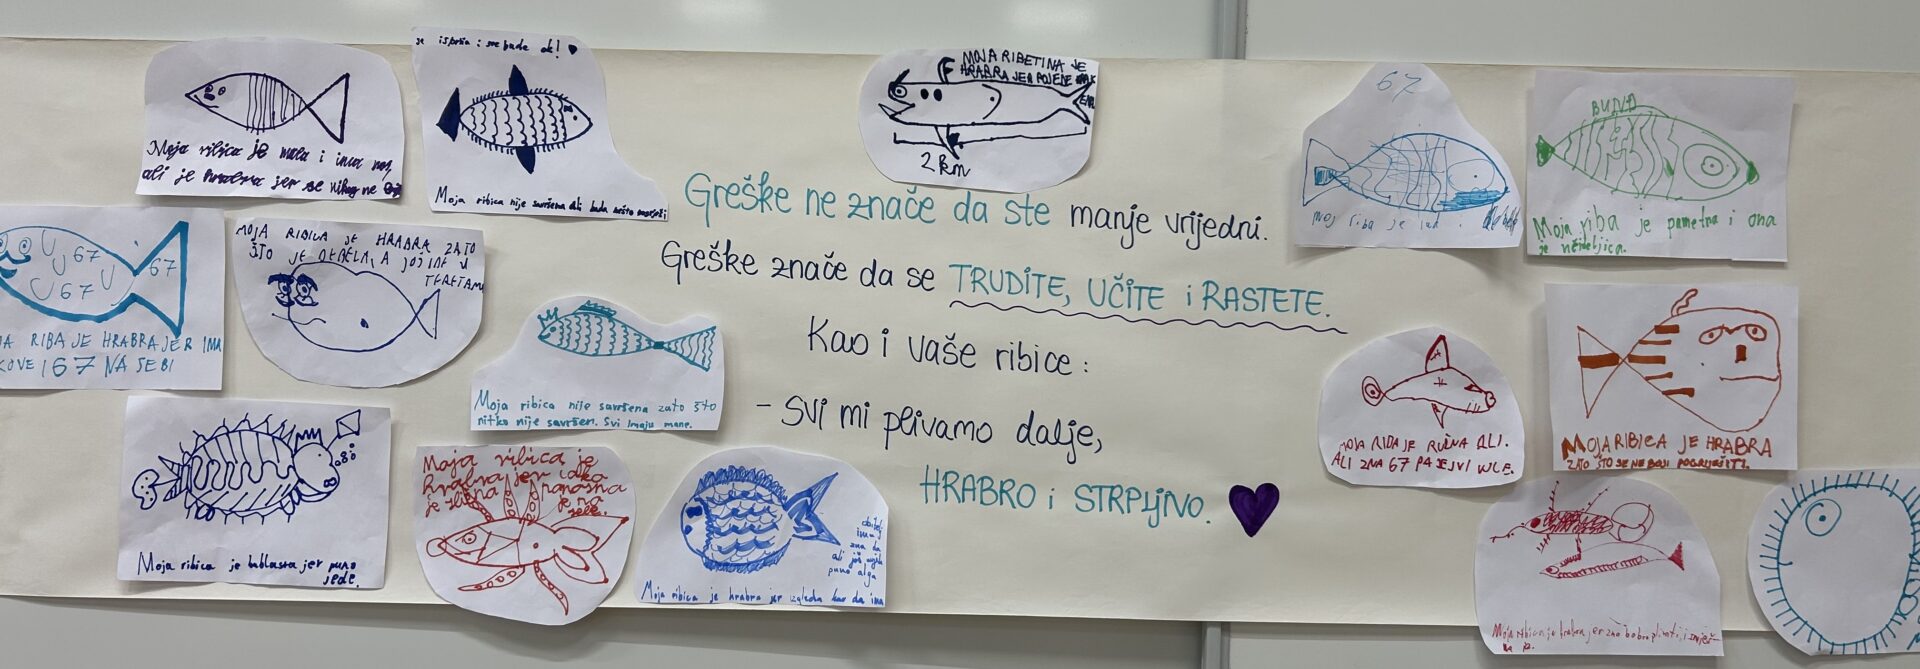 Moja ribica je mala i ima
ali je hrabra jer se nikog ne
se ispriča i sve bude ok!
Moja ribica nije savršena ali kada nešto
MOJA RIBETINA JE
HRABRA JER POJEDE
2 km
67
moj riba je lud.
BUND
Moja riba je pametna i ona
je
U 67 U 67
U 67
RIBA JE HRABRA JER IMA
67 NA SEBI
MOJA RIBICA JE HRABRA ZATO
ŠTO JE DEBELA, A JOŠ IDE U
TERETANU
Greške ne znače da ste manje vrijedni.
Greške znače da se TRUDITE, UČITE i RASTETE.
Kao i vaše ribice:
- Svi mi plivamo dalje,
HRABRO i STRPLJIVO.
Moja ribica nije savršena zato što
nitko nije savršen. Svi imaju mane.
MOJA RIBA JE RUŽNA ALI.
ALI ZNA 67 PA JE
MOJA RIBICA JE HRABRA
ZATO ŠTO SE NE BOJI POGRIJEŠITI.
Moja ribica je bublasta jer puno
jede.
Moja ribica je
hrabra jer iako
je ponosna
je na
sebe.
zna da
ali još uvijek
puno alga
Moja ribica je hrabra jer izgleda kao da ima
Moja ribica je hrabra jer zna dobro plivati i